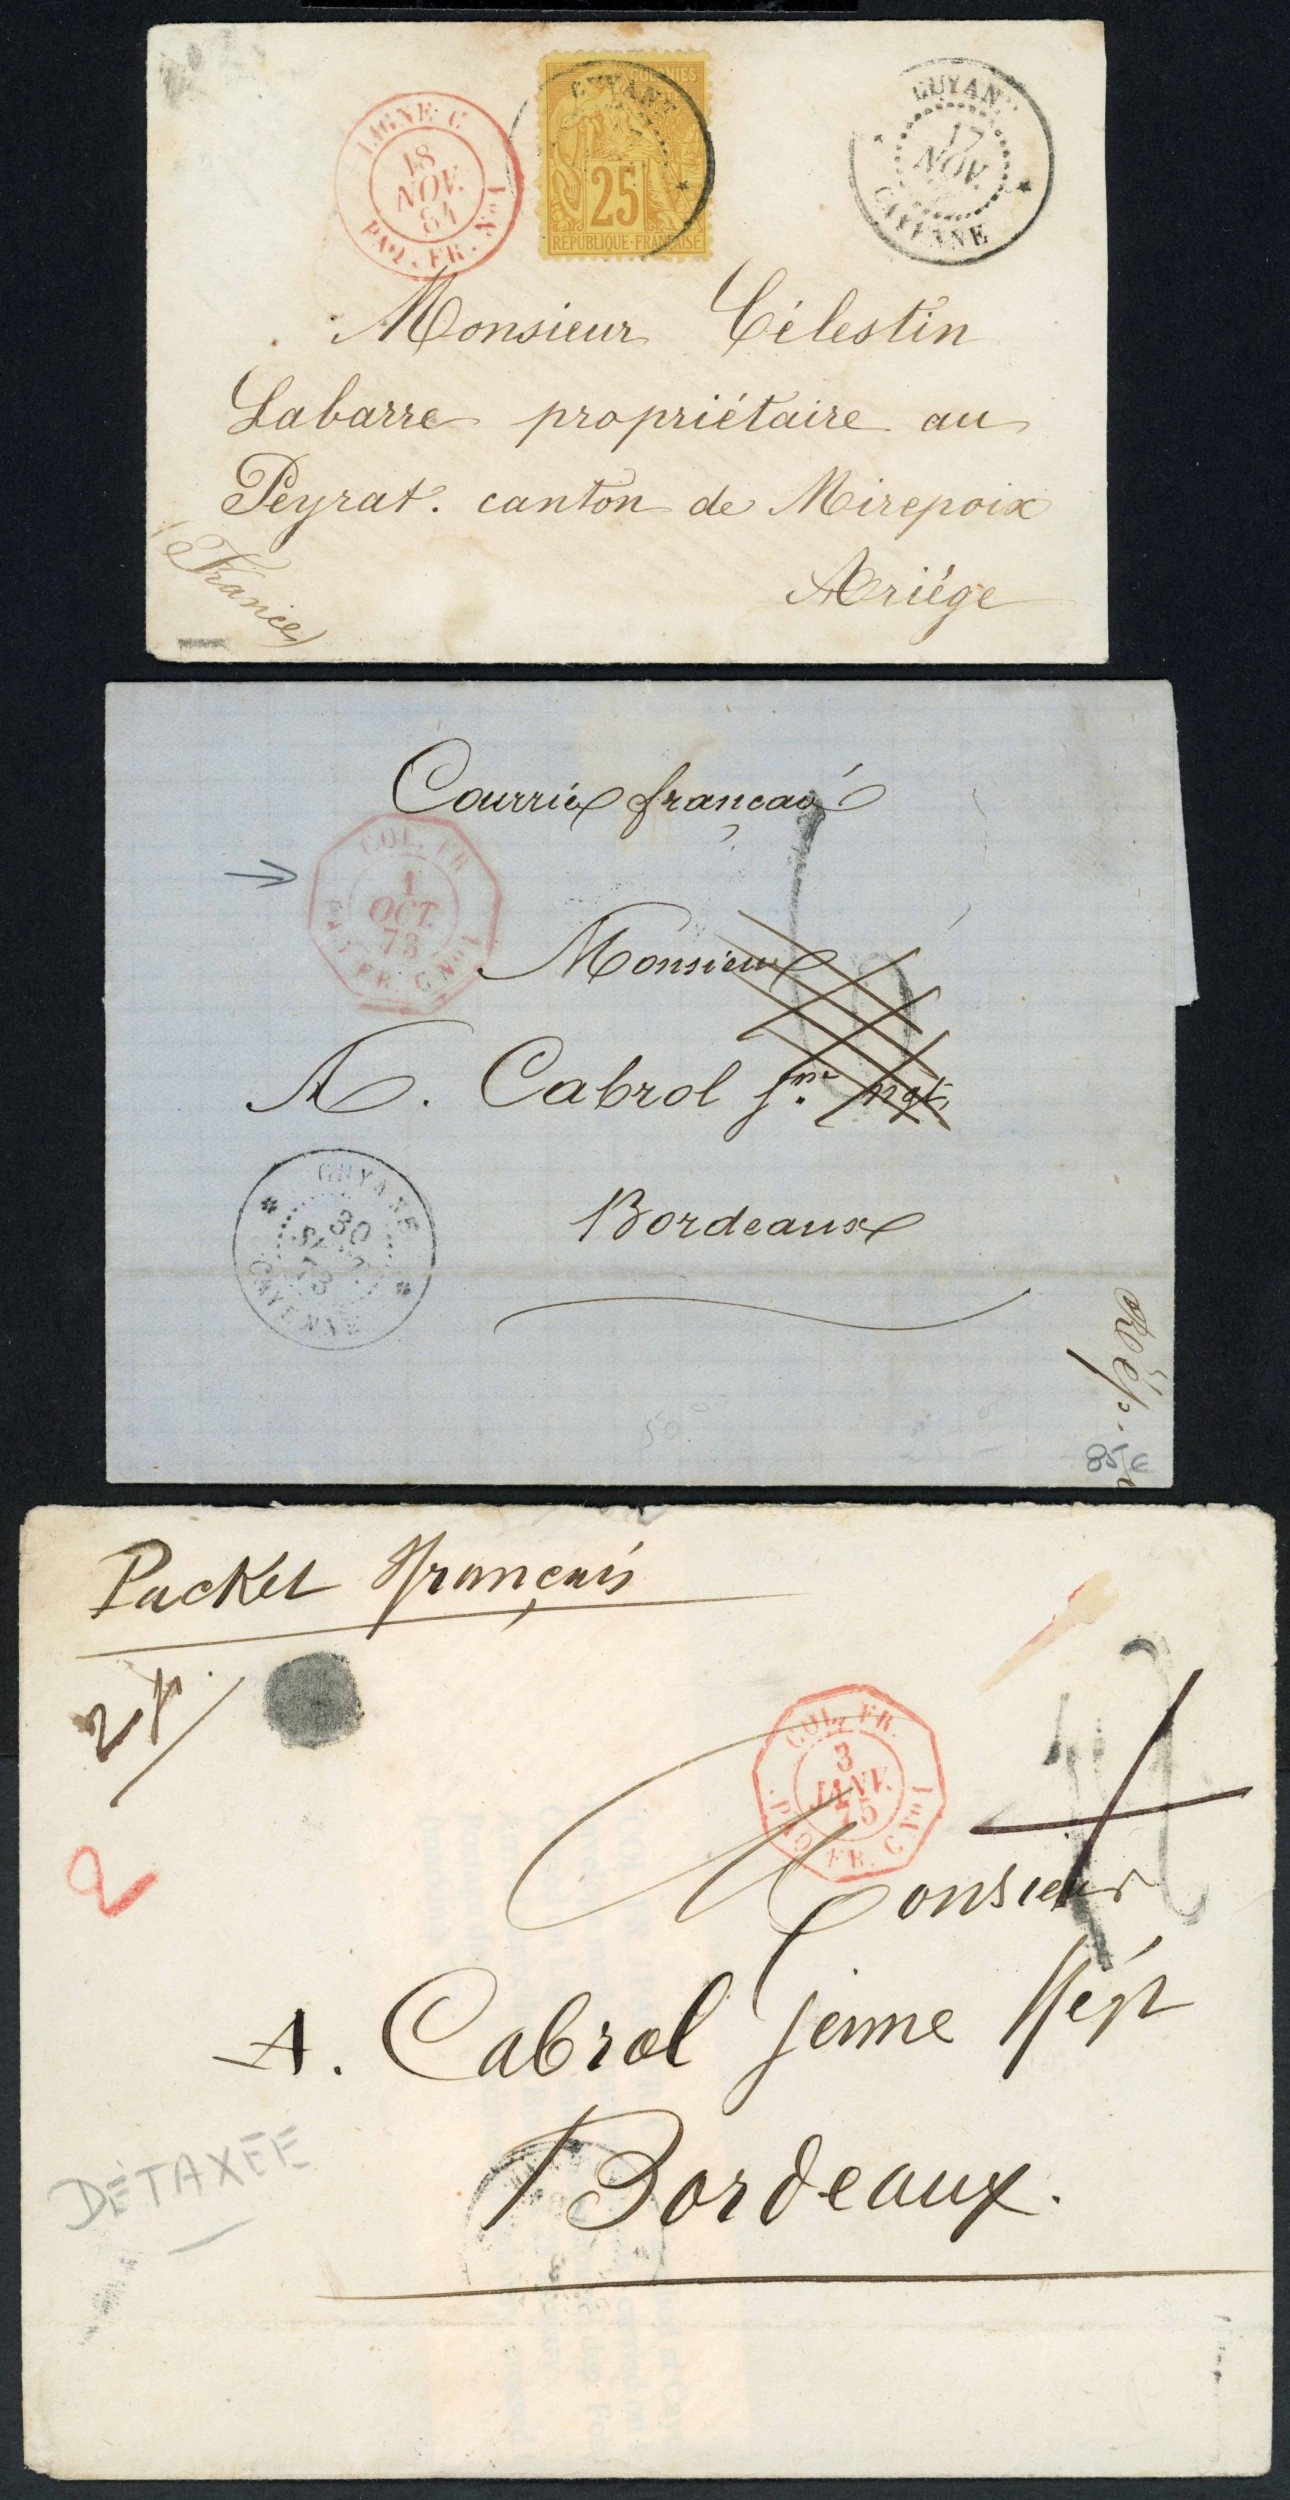 LIGNE C
18
NOV.
84
PAQ. FR. No 1
COLONIES
GUYANE
25
REPUBLIQUE-FRANÇAISE
GUYANE
17
NOV.
CAYENNE
Monsieur Célestin
Labarre propriétaire au
Peyrat. canton de Mirepoix
Ariége
(France)
Courrier français
COL. FR.
1
OCT.
73
PAQ. FR. C No 1
Monsieur
A. Cabrol jne ngt,
Bordeaux
GUYANE
30
SEPT.
73
CAYENNE
50
85 €
Packet français
2
2
COL. FR.
3
JANV.
75
PAQ. FR. C No 1
Monsieur
A. Cabrol jeune Négt
Bordeaux.
DÉTAXÉE